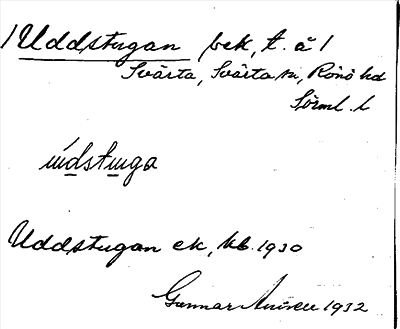 /Uddstugan bek, t. å/
Svärta, Svärta sn, Rönö hd
Sörml. l
údstuga
Uddstugan ek, kb. 1930
Gunnar 1932